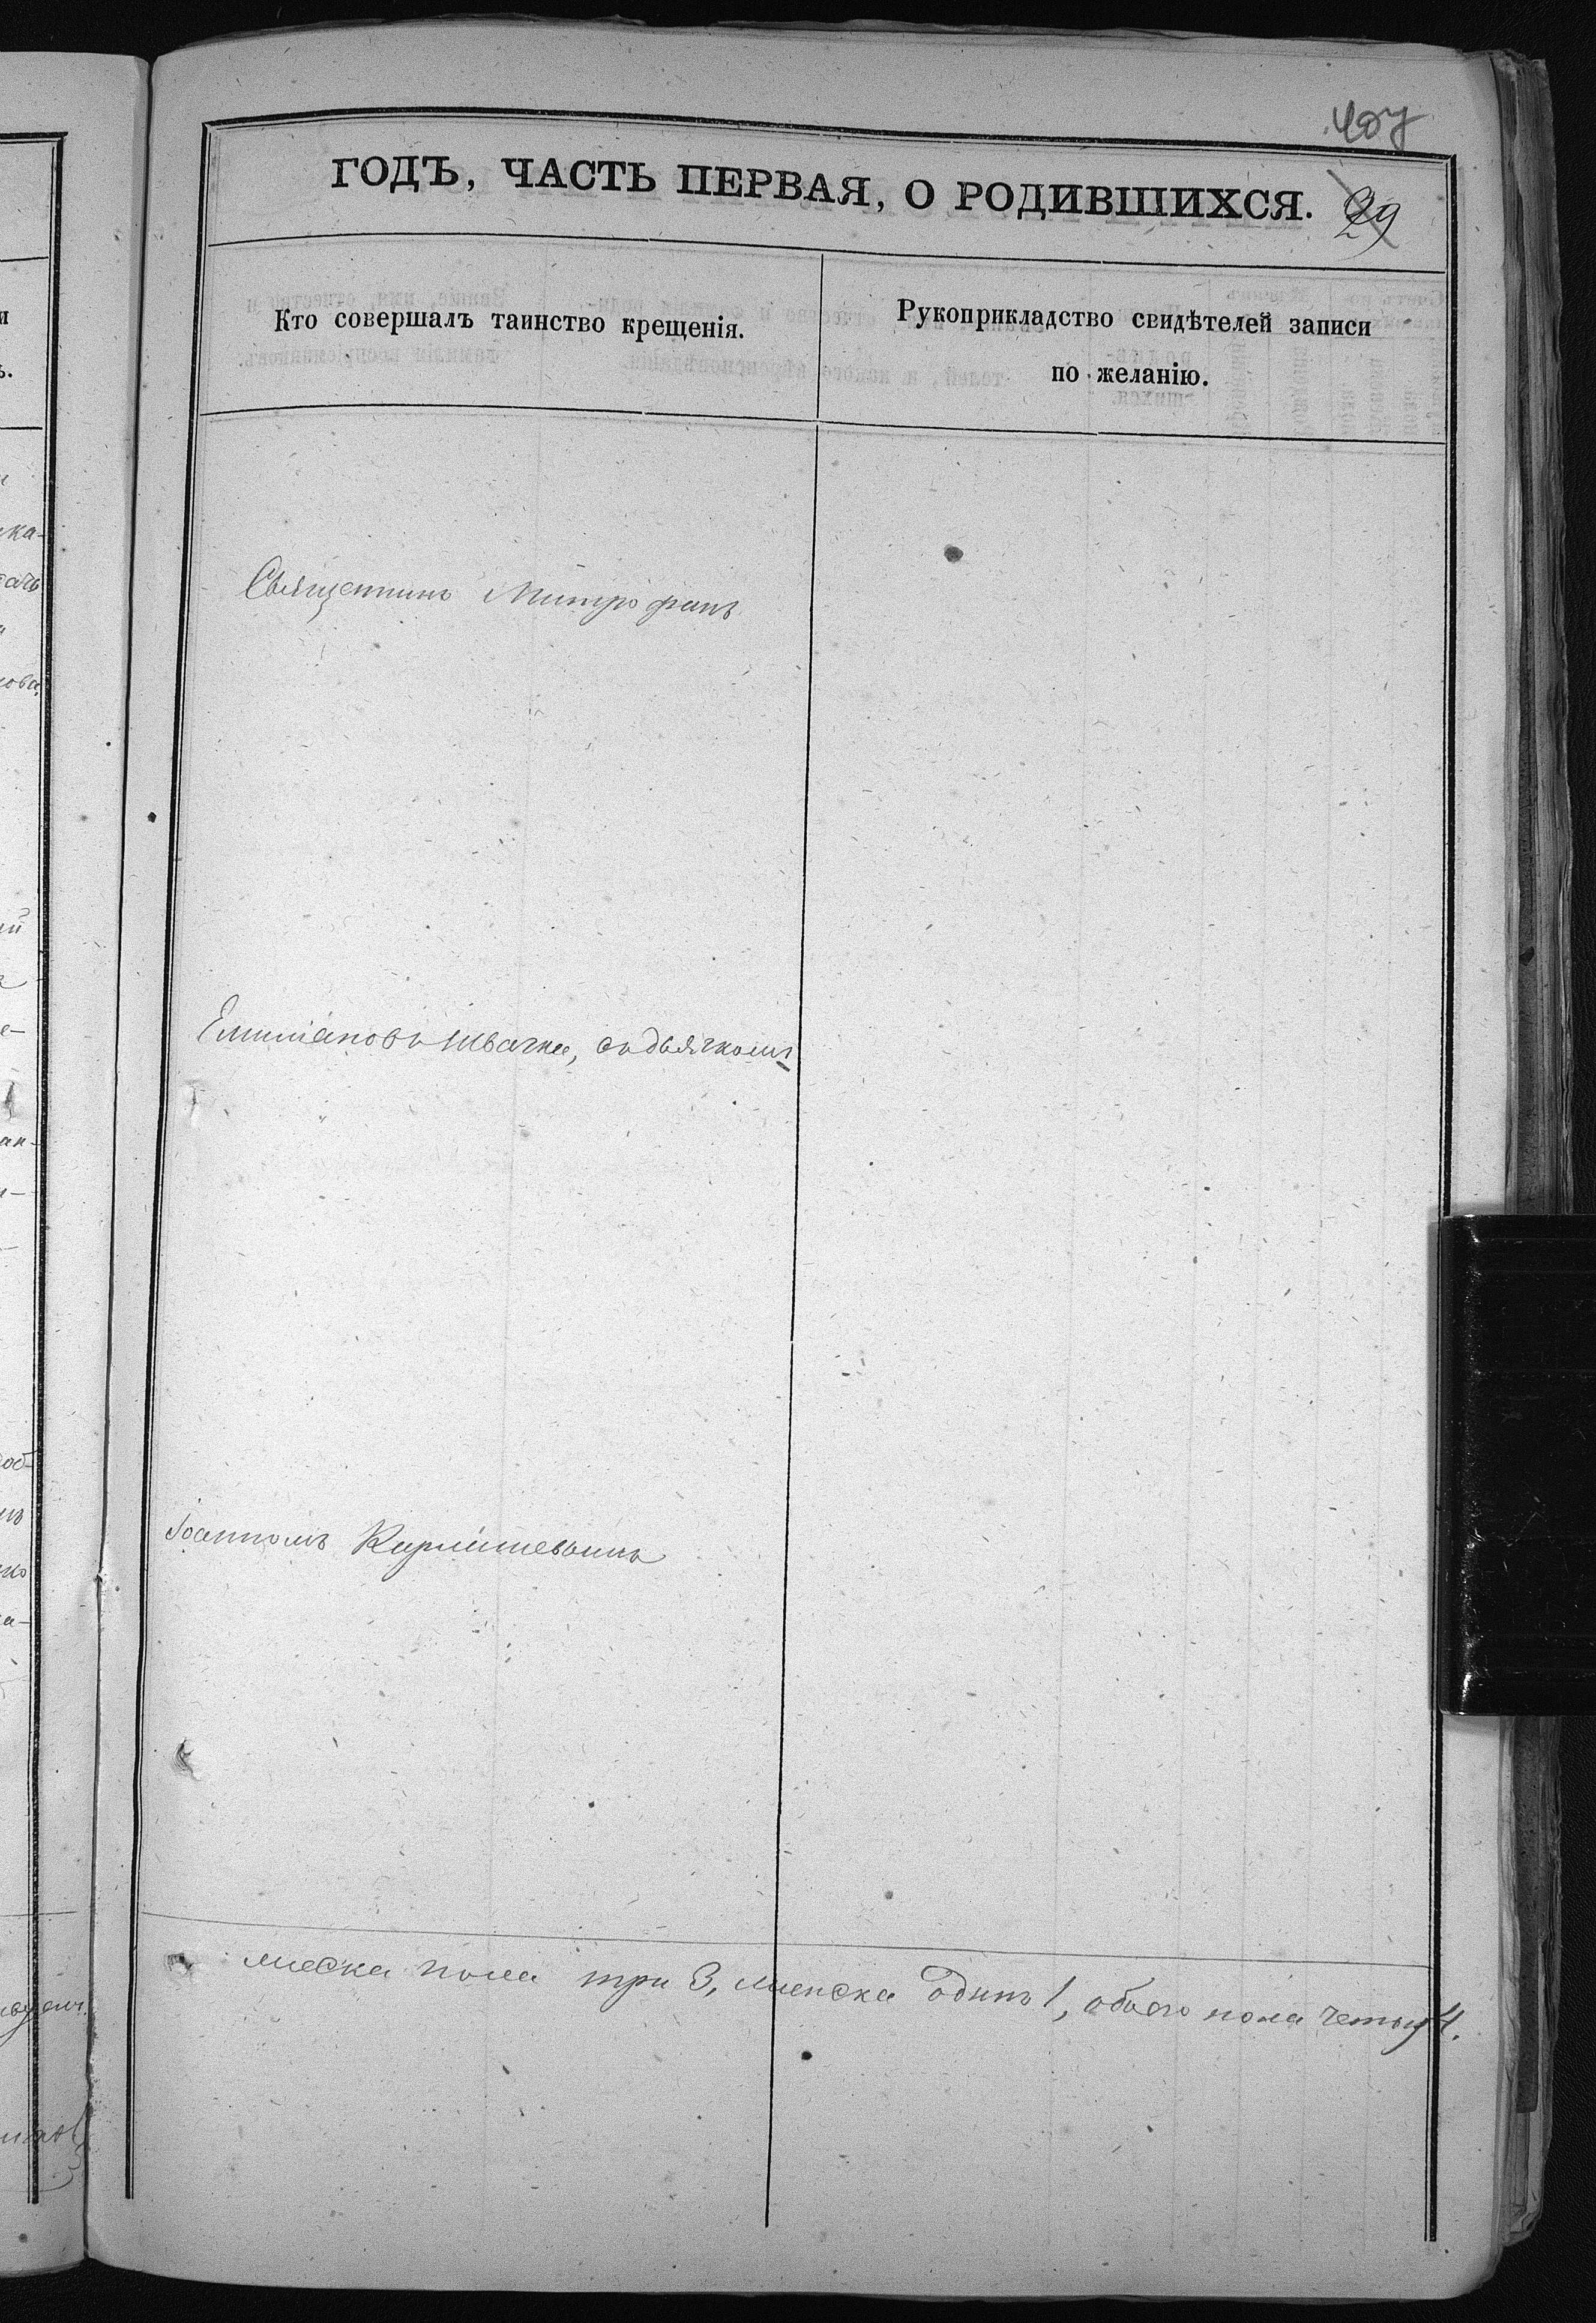 407
ГОДЪ, ЧАСТЬ ПЕРВАЯ, О РОДИВШИХСЯ. 29
Кто совершалъ таинство крещенія.
Рукоприкладство свидѣтелей записи
по желанію.
Священникъ Митрофанъ
Емиліановъ Швачка, съ дьячкомъ
Іоанномъ
муска пола три 3, женска одинъ 1, обоего пола четыр 4.